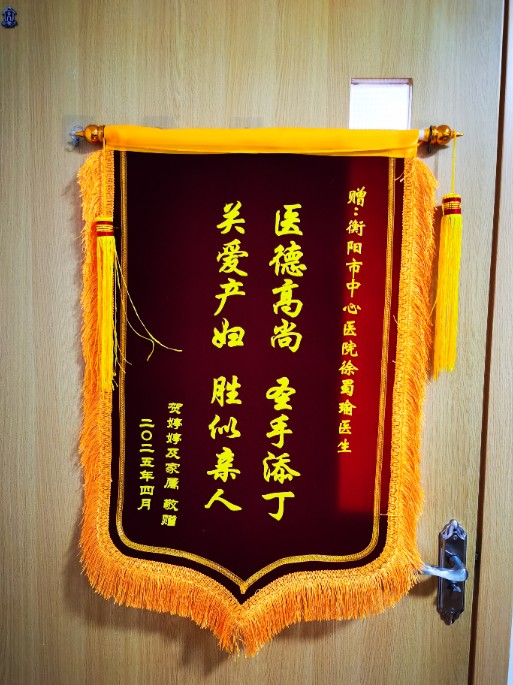 赠：衡阳市中心医院徐蜀瑜医生
医德高尚 圣手添丁
关爱产妇 胜似亲人
贺婷婷及家属 敬赠
二〇二五年四月